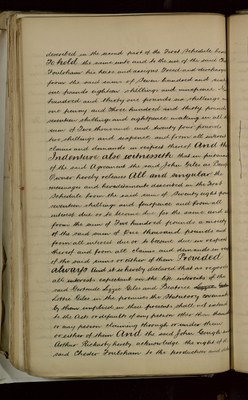 described in the second part of the First Schedule here
To hold the same unto and to the use of the said Che
Fowlsham his heirs and assigns freed and discharged
from the sum of Seven hundred and
one pounds eighteen shillings and ninepence
hundred and thirty one pounds six shillings
one penny and Three hundred and thirty pounds
seventeen shillings and eightpence making in all
sum of Two thousand and twenty four pounds
two shillings and sixpence and from all interest
claims and demands in respect thereof And this
Indenture also witnesseth that in pursuance
of the said Agreement the said John Giles as
Owner hereby releases All and singular the
messuages and hereditaments described in the First
Schedule from the said sum of Seventy eight pounds
seventeen shillings and fourpence and from all
interest due or to become due for the same and
from the sum of Five hundred pounds a moiety
of the said sum of One thousand pounds and
from all interest due or to become due in respect
thereof and from all claims and demands in
of the said sums or either of them Provided
always And it is hereby declared that as regards
all interests expectant on the life interests of the
said Gertrude Lizzie Giles and Beatrice
Louisa Giles in the premises the Statutory covenant
by them implied in these presents shall not extend
to the Acts or defaults of any person other than
or any person claiming through or under them
or either of them And the said John Gough and
Arthur Rickerby hereby acknowledge the right of the
said Chester Fowlsham to the production and